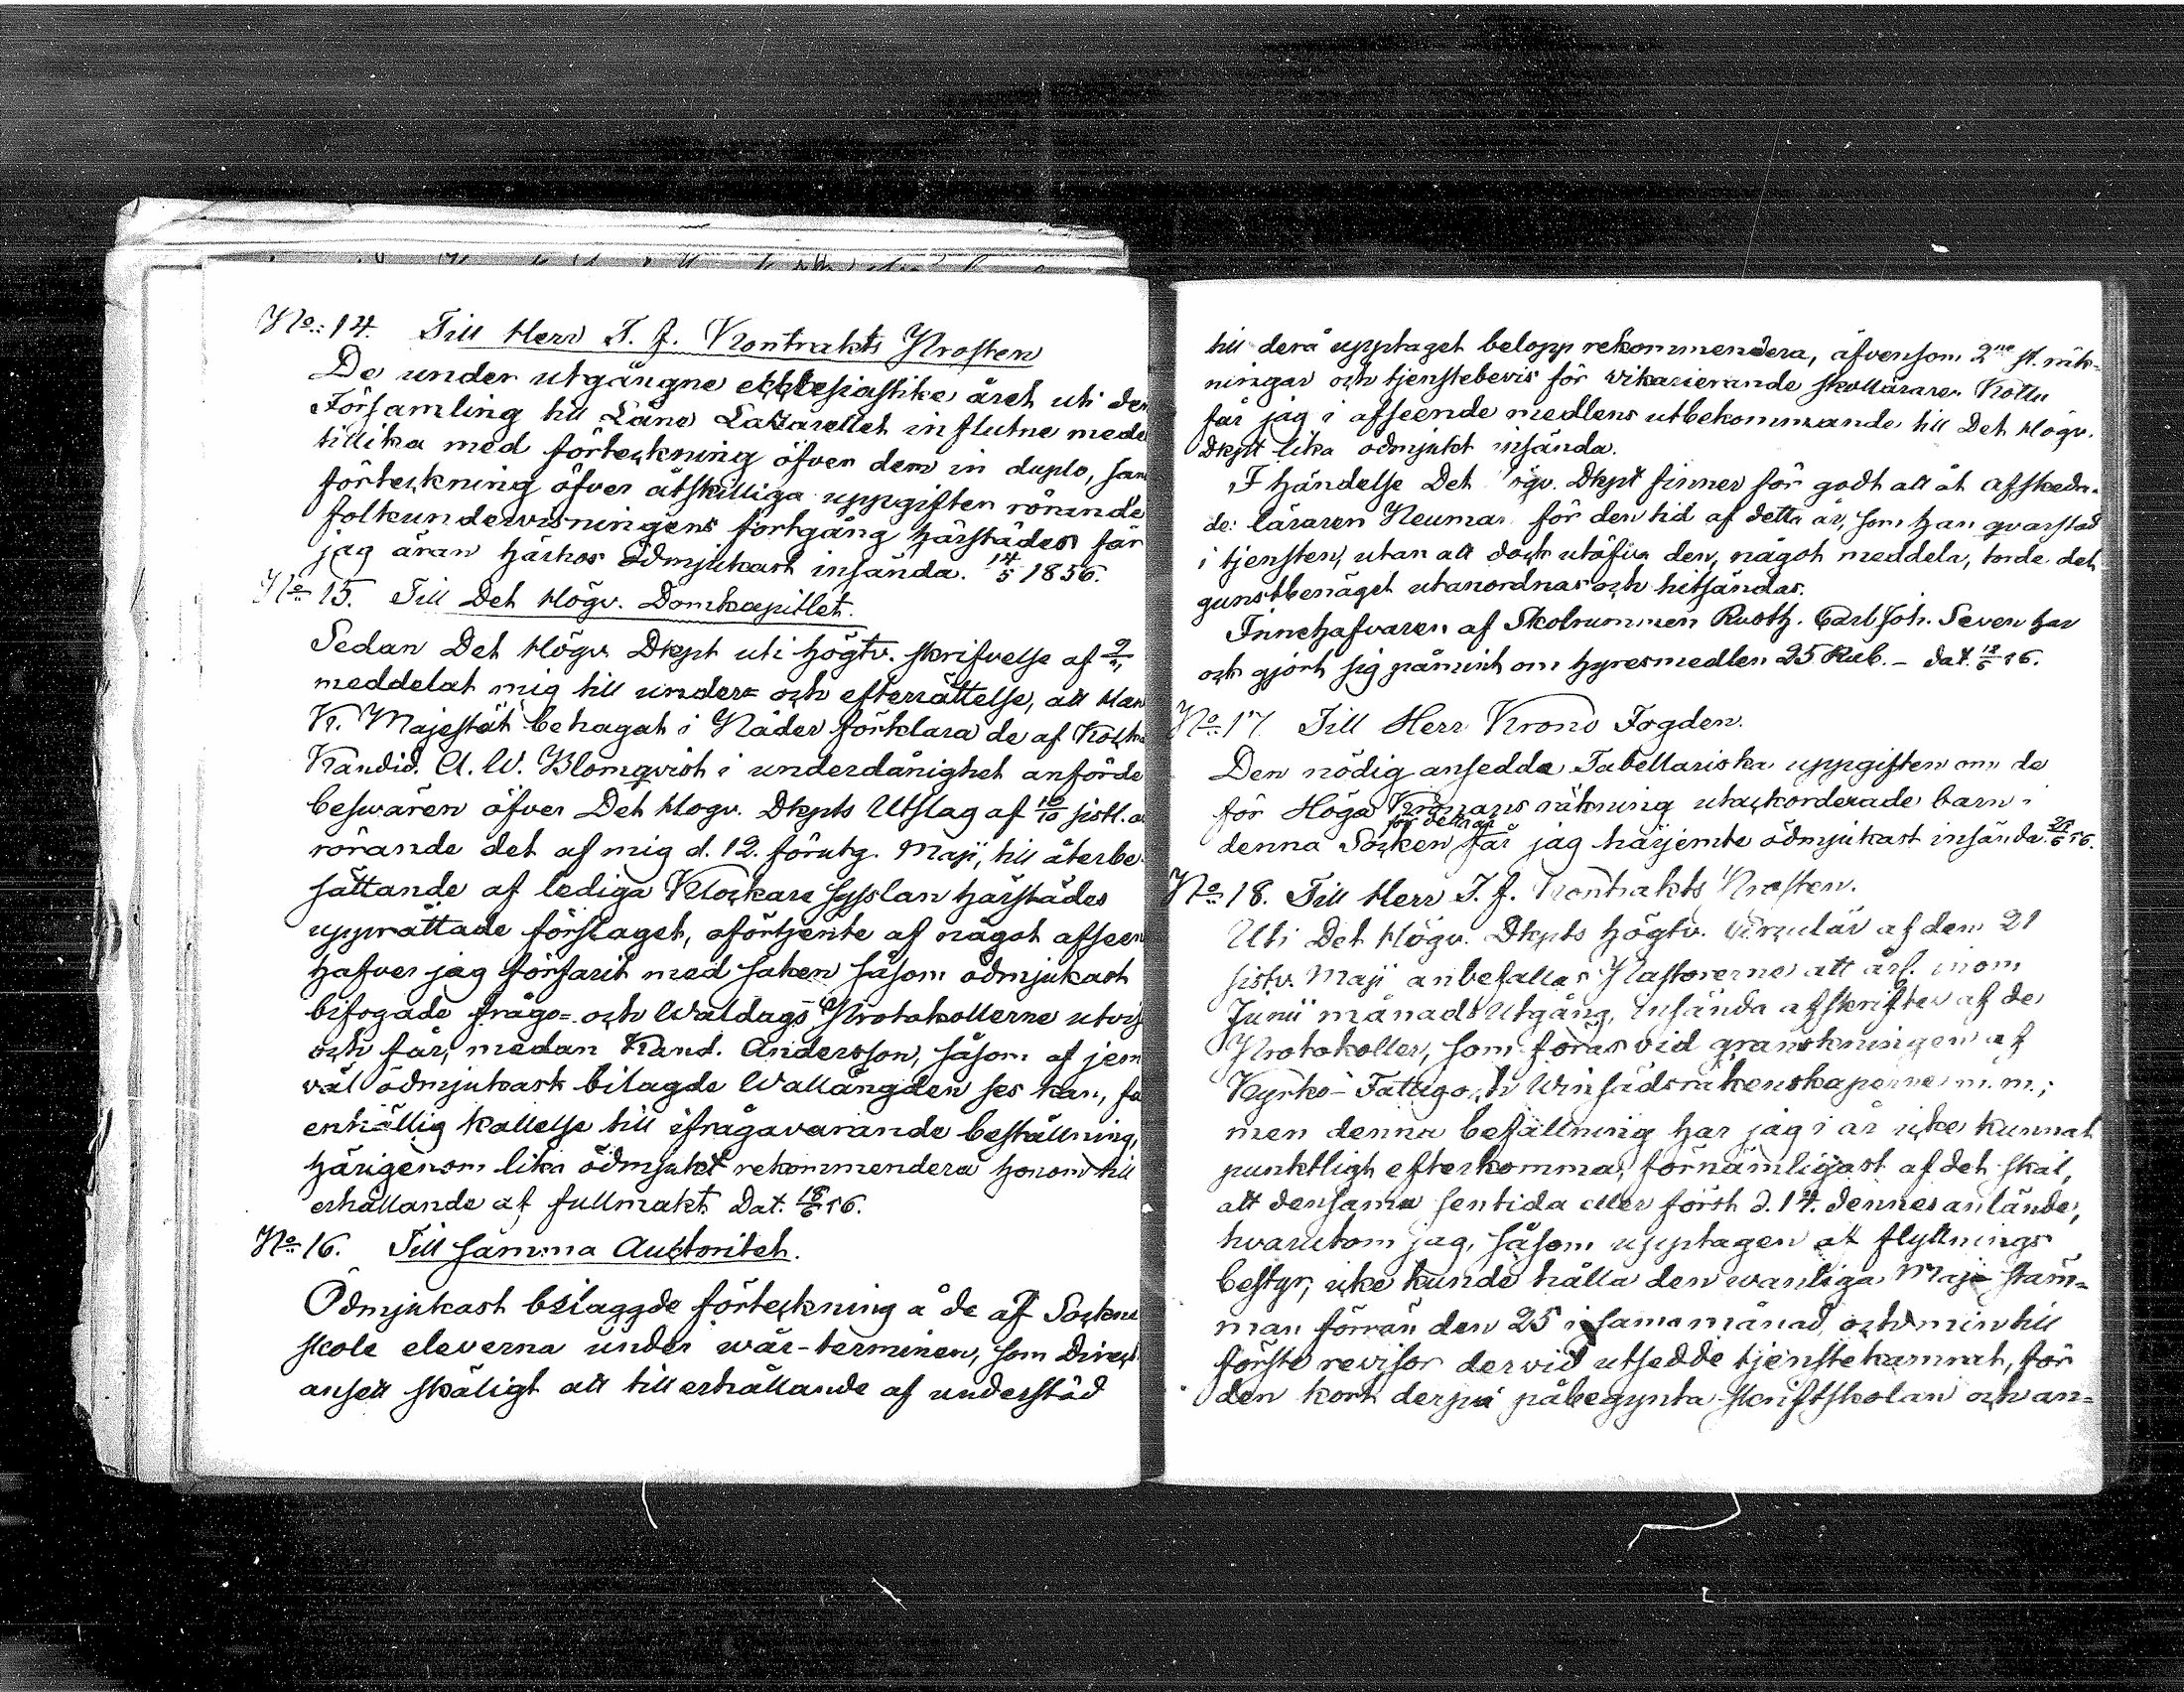 No: 14. Till Herr T. f. Kontrakts Prosten
De under utgångne ekklesiastike året uti den
Församling till Läns Lazarettet influtne mede
tillika med förteckning öfver dem in duplo, sam
förteckning öfver åtskilliga uppgifter rörande
folkundervisningens fortgång härstädes får
jag äran härhos ödmjukast insända. 14/5 1856.
No 15. Till Det Högv. Domkapitlet.
Sedan Det Högv. Dkpt uti högtv. skrifvelse af
meddelat mig till under= och efterrättelse, att Han
K. Majestät behagat i Nåder förklara de af
Kandid. A. W. Blomqvist i underdånighet anförde
beswären öfver Det Högv. Dkpts Utslag af sistl. a
rörande det af mig d. 12. förutg. Maji, till återbe-
sättande af lediga Klockare sysslan härstädes
upprättade förslaget, oförtjente af något afseen
hafver jag förfarit med saken såsom ödmjukast
bifogade frågo= och Waldags Protokollerne utvis
och får, medan Kand. Andersson, såsom af jem
väl ödmjukast bilagde Wallängden ses kan, få
enhällig kallelse till ifrågavarande beställning,
härigenom lika ödmjukt rekommendera honom till
erhållande af fullmakt. Dat. 18/6 56.
No 16. Till samma Auctoritet.
Ödmjukast bilaggde förteckning å de af Sockne
skole eleverna under wår-terminen, som Direct
ansett skäligt att till erhållande af understöd
till derå upptaget belopp rekommendera, äfvensom 2ne st. räk-
ningar och tjenstebevis för vikarierande skolläraren
får jag i afseende medlens utbekommande till Det Högv.
Dkpt lika ödmjukt insända.
I händelse Det Högv. Dkpt finner för godt att åt afskeda-
de läraren Neuman för den tid af detta år, som han qvarstad
i tjensten, utan att dock utöfva den, något meddela, torde det
gunstbenäget utanordnas och hitsändas.
Innehafvaren af Skolrummen Rusth. Carl Joh. Seven har
ock gjort sig påmint om hyresmedlen 25 Rub. - dat. 18/6 56.
No 17. Till Herr Krono Fogden.
Den nödig ansedda Tabellariska uppgiften om de
för Höga Kronans räkning utackorderade barn i
denna Socken för detta år får jag härjemte ödmjukast insända. 56.
No 18. Till Herr T. f. Kontrakts Prosten.
Uti Det Högv. Dkpts högtv. Cirkulär af den 21
sistv. Maji anbefallas Pastorerne att årl. inom
Junii månads Utgång, insända afskrifter af de
Protokoller, som föras vid granskningen af
Kyrko- Fattig och Winsädsräkenskaperne m. m.;
men denna befallning har jag i år icke kunnat
punktligt efterkomma, förnämligast af det skäl,
att densama sentida eller först d. 14. dennes anlände,
hvarutom jag, såsom upptagen af flyttnings
bestyr, icke kunde hålla den wanliga Maji stäm=
man förrän den 25 i sama månad, och min till
förste revisor dervid utsedde tjenstekamrat, för
den kort derpå påbegynta skriftskolan och an=